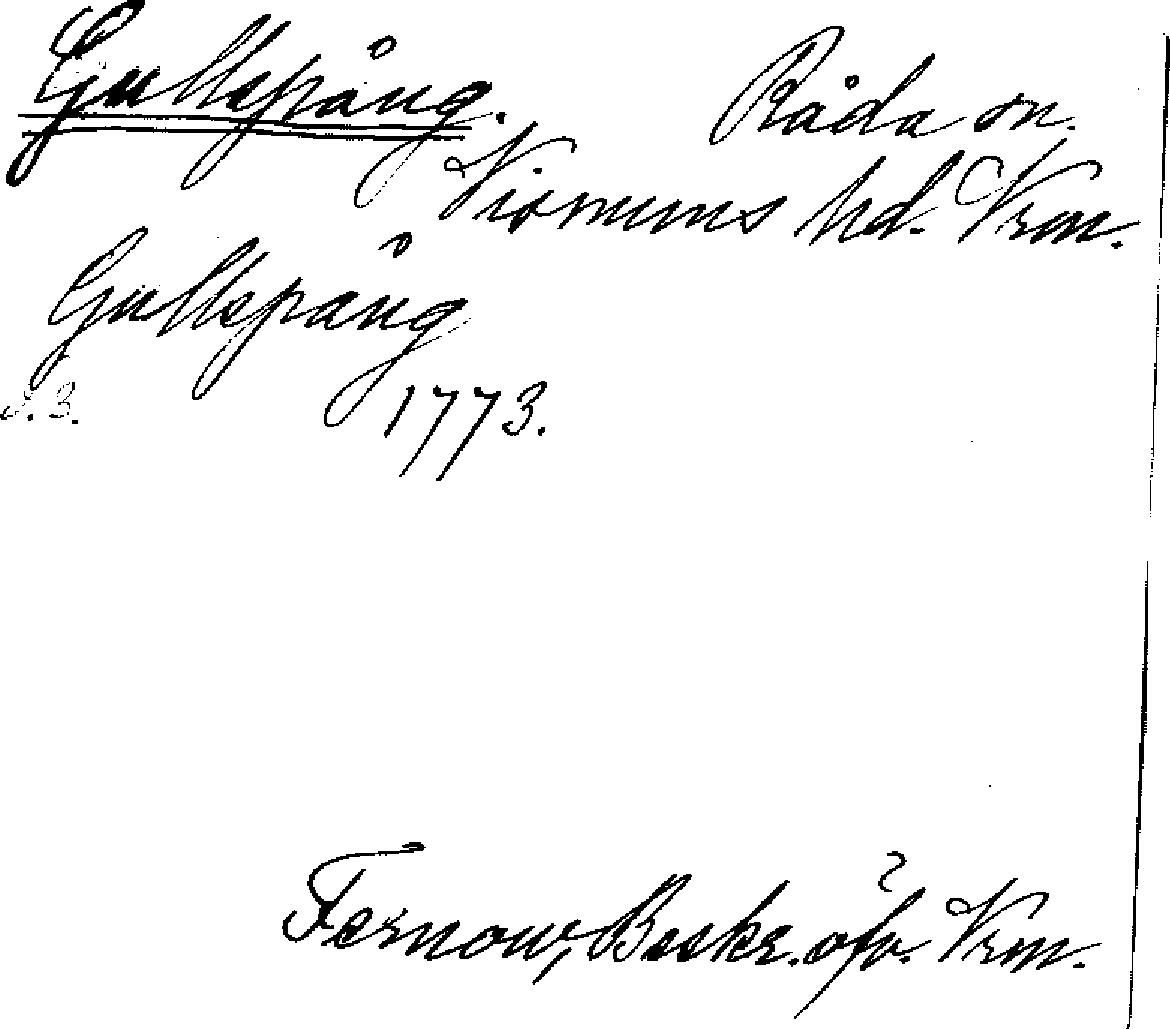 Gullspång. Råda sn.
Visnums hd. Vrm.
Gullspång
s. 3. 1773.
Fernow, Beskr. öfv. Vrm.